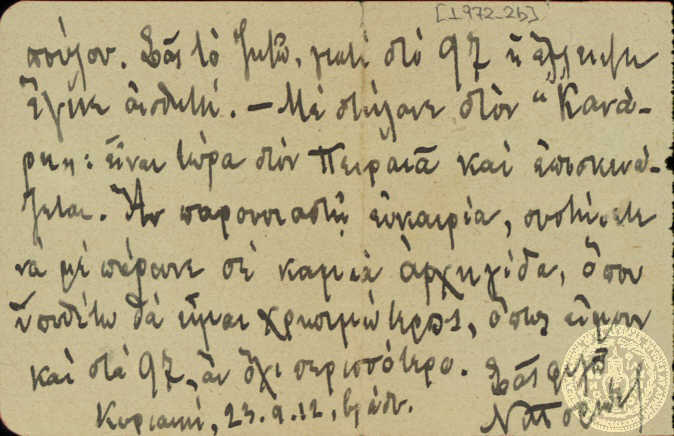 [1972-26]
πούλου. Σᾶς τὸ ζητῶ, γιατὶ στὸ 97 ἡ ἔλλειψη
ἔγινε αἰσθητή. — Μὲ στείλανε στὸν "Κανά-
ρη": εἶναι τώρα στὸν Πειραιᾶ καὶ ἐπισκευά-
ζεται. Ἂν παρουσιαστῇ εὐκαιρία, συστήσετε
νὰ μὲ πάρουνε σὲ καμιὰ ἀρχηγίδα, ὅπου
ὑποθέτω θὰ εἶμαι χρησιμώτερος, ὅπως εἴμουν
καὶ στὰ 97, ἂν ὄχι περισσότερο. Σᾶς φιλῶ
Κυριακή, 23.9.12, βράδυ.